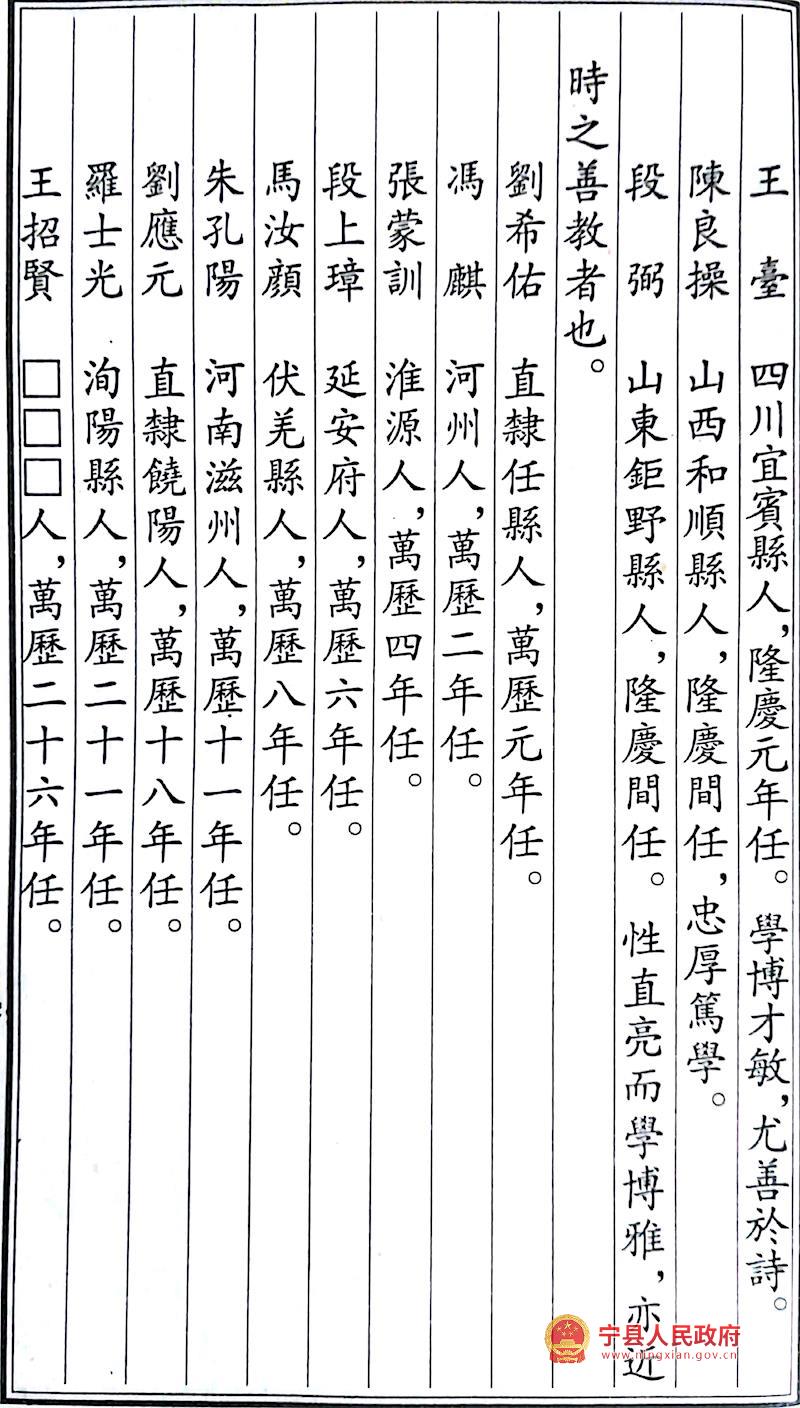 王　臺　四川宜賓縣人，隆慶元年任。學博才敏，尤善於詩。
陳良操　山西和順縣人，隆慶間任，忠厚篤學。
段　弼　山東鉅野縣人，隆慶間任。性直亮而學博雅，亦近
時之善教者也。
劉希佑　直隸任縣人，萬歷元年任。
馮　麒　河州人，萬歷二年任。
張蒙訓　淮源人，萬歷四年任。
段上璋　延安府人，萬歷六年任。
馬汝顔　伏羌縣人，萬歷八年任。
朱孔陽　河南滋州人，萬歷十一年任。
劉應元　直隸饒陽人，萬歷十八年任。
羅士光　洵陽縣人，萬歷二十一年任。
王招賢　□□□人，萬歷二十六年任。
宁县人民政府
www.ningxian.gov.cn